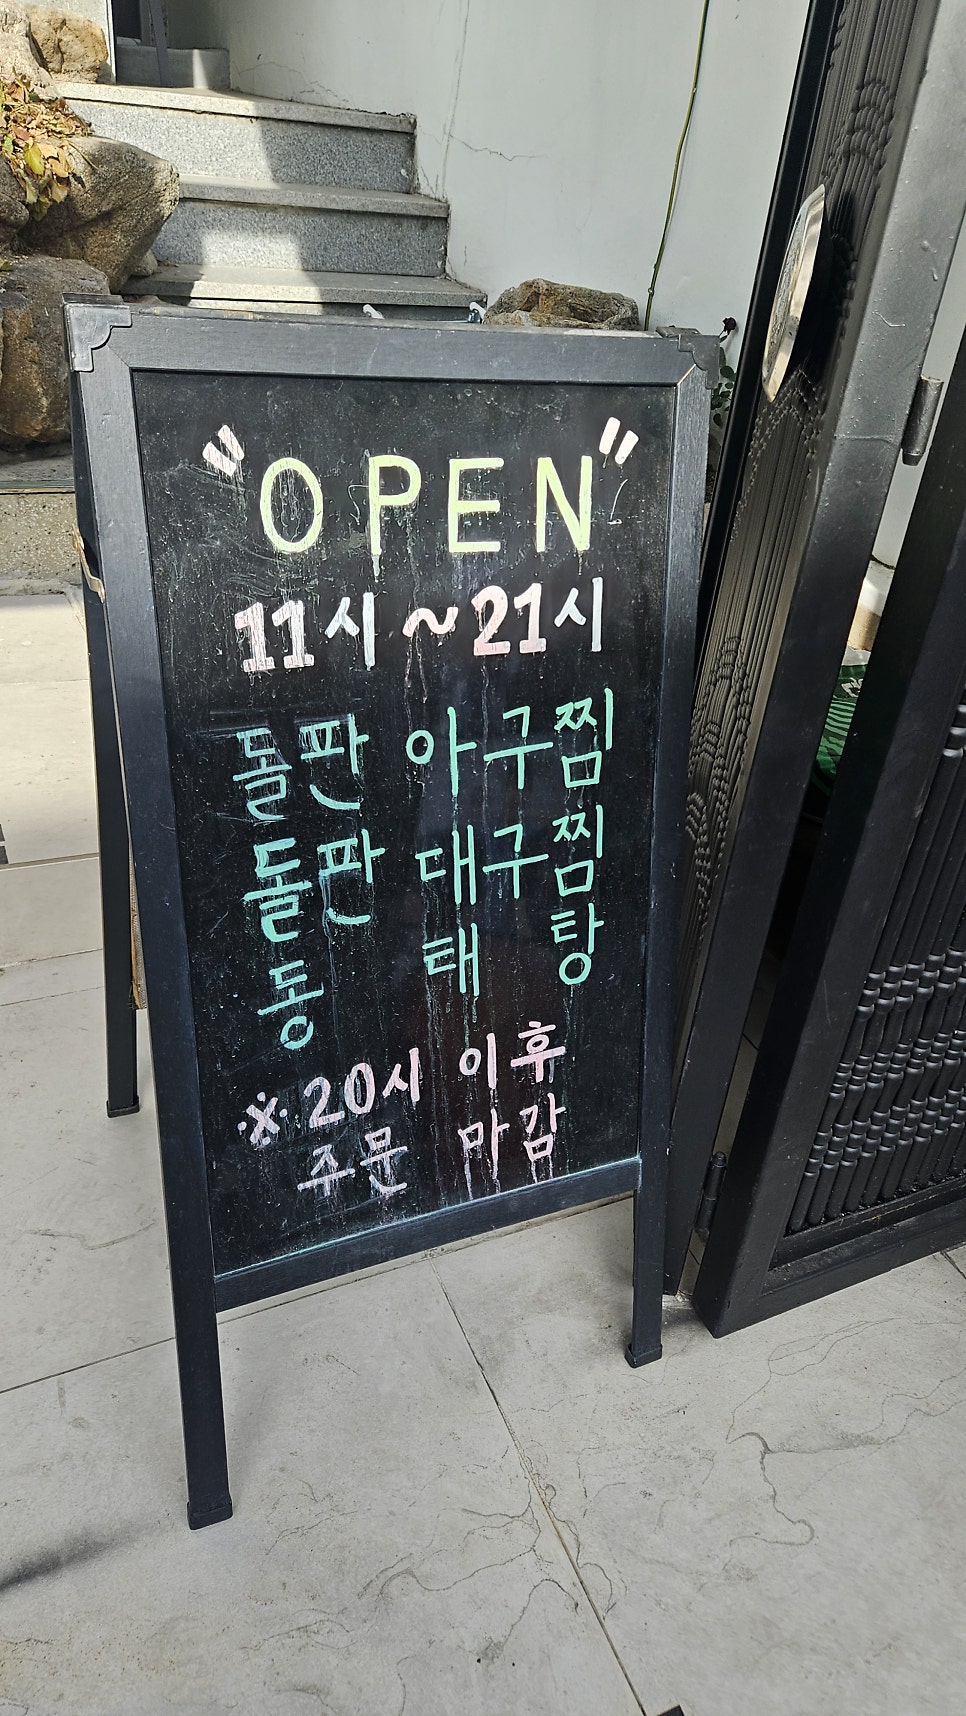 "OPEN"
11시~21시
돌판 아구찜
돌판 대구찜
동 태 탕
※20시 이후
주문 마감